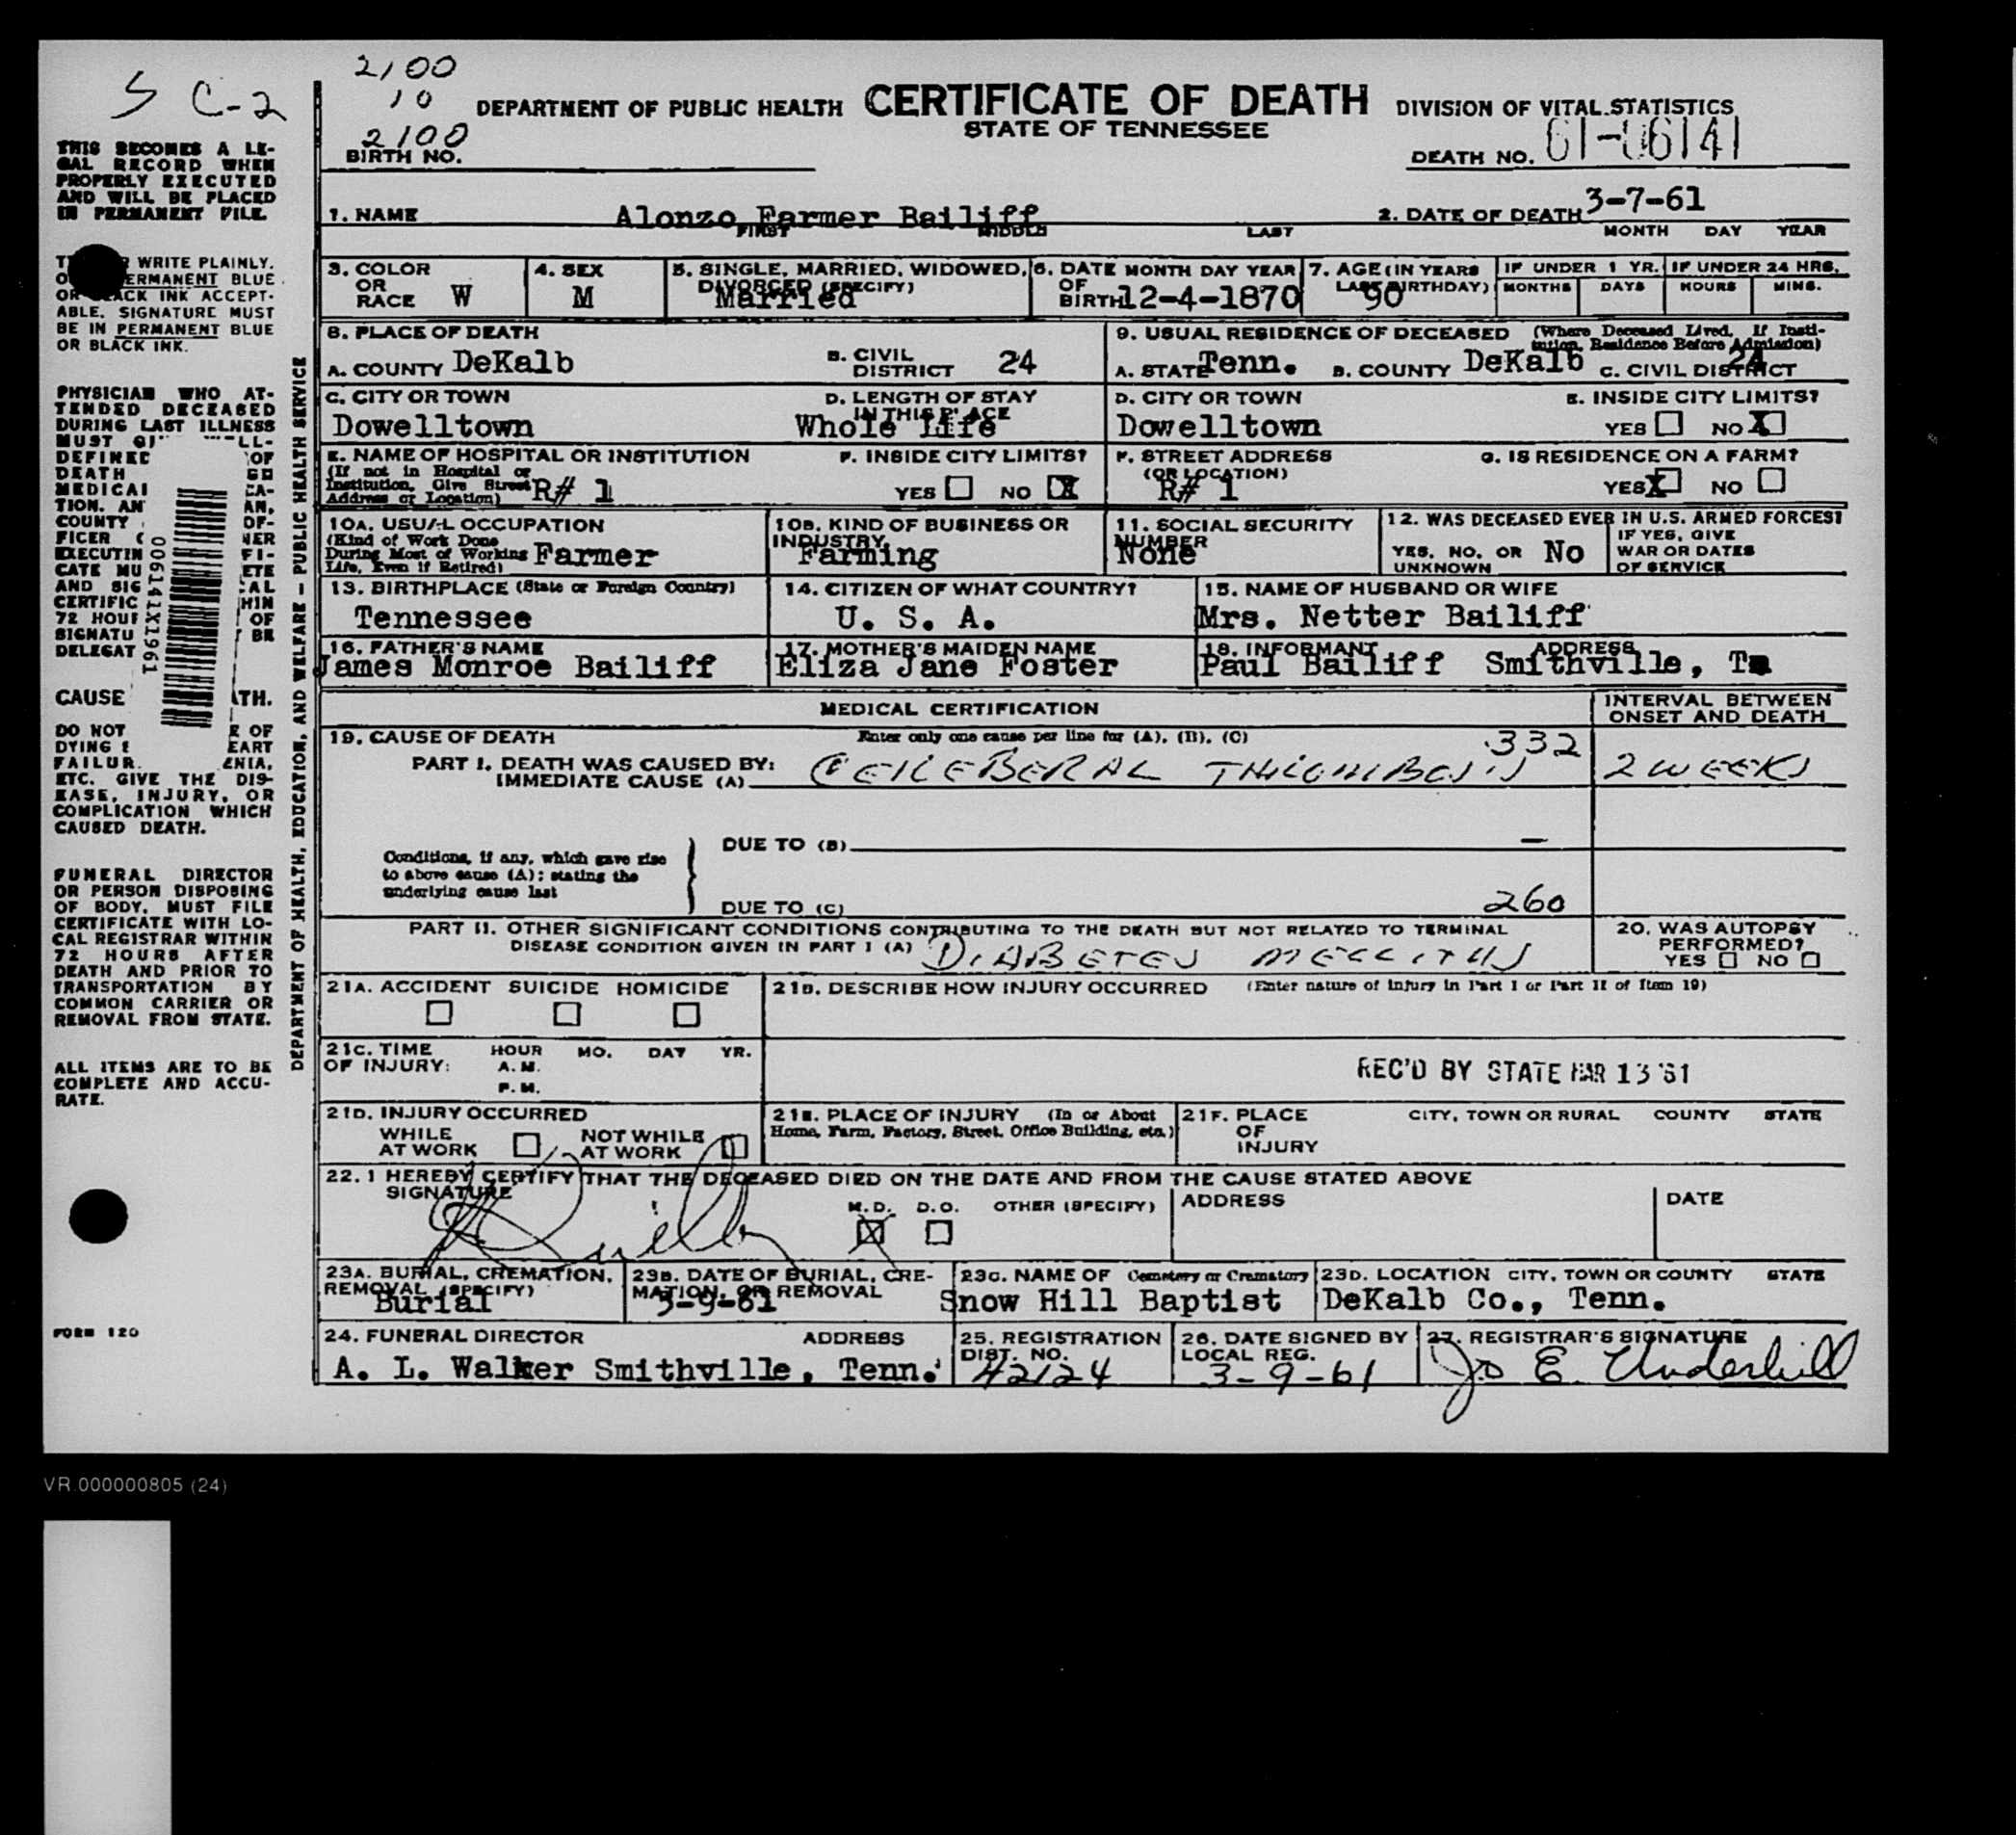 S C-2
2100
10
2100
DEPARTMENT OF PUBLIC HEALTH CERTIFICATE OF DEATH DIVISION OF VITAL STATISTICS
STATE OF TENNESSEE
BIRTH NO.
DEATH NO. 61-06141
THIS BECOMES A LE-
GAL RECORD WHEN
PROPERLY EXECUTED
AND WILL BE PLACED
IN PERMANENT FILE.
WRITE PLAINLY.
ERMANENT BLUE
OR ACK INK ACCEPT-
ABLE. SIGNATURE MUST
BE IN PERMANENT BLUE
OR BLACK INK.
PHYSICIAN WHO AT-
TENDED DECEASED
DURING LAST ILLNESS
MUST GI LL-
DEFINED OF
DEATH
MEDICAI CA-
TION. AN AN,
COUNTY OF-
FICER NER
EXECUTIN FI-
CATE MU ETE
AND SIG CAL
CERTIFIC HIN
72 HOUF OF
SIGNATU BE
DELEGAT
006141X1961
CAUSE ATH.
DO NOT E OF
DYING EART
FAILUR ENIA,
ETC. GIVE THE DIS-
EASE, INJURY, OR
COMPLICATION WHICH
CAUSED DEATH.
FUNERAL DIRECTOR
OR PERSON DISPOSING
OF BODY, MUST FILE
CERTIFICATE WITH LO-
CAL REGISTRAR WITHIN
72 HOURS AFTER
DEATH AND PRIOR TO
TRANSPORTATION BY
COMMON CARRIER OR
REMOVAL FROM STATE.
ALL ITEMS ARE TO BE
COMPLETE AND ACCU-
RATE.
FORM 120
DEPARTMENT OF HEALTH, EDUCATION, AND WELFARE - PUBLIC HEALTH SERVICE
1. NAME Alonzo Farmer Bailiff 2. DATE OF DEATH 3-7-61
FIRST MIDDLE LAST MONTH DAY YEAR
3. COLOR OR RACE W
4. SEX M
5. SINGLE, MARRIED, WIDOWED, DIVORCED (SPECIFY) Married
6. DATE OF BIRTH MONTH DAY YEAR 12-4-1870
7. AGE (IN YEARS LAST BIRTHDAY) 90
IF UNDER 1 YR. MONTHS DAYS
IF UNDER 24 HRS. HOURS MINS.
8. PLACE OF DEATH
A. COUNTY DeKalb B. CIVIL DISTRICT 24
9. USUAL RESIDENCE OF DECEASED (Where Deceased Lived, If Insti-
tution, Residence Before Admission)
A. STATE Tenn. B. COUNTY DeKalb C. CIVIL DISTRICT 24
C. CITY OR TOWN Dowelltown
D. LENGTH OF STAY IN THIS PLACE Whole Life
D. CITY OR TOWN Dowelltown
E. INSIDE CITY LIMITS? YES NO X
E. NAME OF HOSPITAL OR INSTITUTION
(If not in Hospital or
Institution, Give Street
Address or Location) R# 1
F. INSIDE CITY LIMITS? YES NO X
F. STREET ADDRESS
(OR LOCATION)
R# 1
G. IS RESIDENCE ON A FARM? YES X NO
10A. USUAL OCCUPATION
(Kind of Work Done
During Most of Working
Life, Even if Retired) Farmer
10B. KIND OF BUSINESS OR INDUSTRY Farming
11. SOCIAL SECURITY NUMBER None
12. WAS DECEASED EVER IN U.S. ARMED FORCES?
YES, NO, OR UNKNOWN No
IF YES, GIVE WAR OR DATES OF SERVICE
13. BIRTHPLACE (State or Foreign Country) Tennessee
14. CITIZEN OF WHAT COUNTRY? U. S. A.
15. NAME OF HUSBAND OR WIFE Mrs. Netter Bailiff
16. FATHER'S NAME James Monroe Bailiff
17. MOTHER'S MAIDEN NAME Eliza Jane Foster
18. INFORMANT ADDRESS Paul Bailiff Smithville, Tn
MEDICAL CERTIFICATION
INTERVAL BETWEEN
ONSET AND DEATH
19. CAUSE OF DEATH Enter only one cause per line for (A), (B), (C)
332
PART I. DEATH WAS CAUSED BY:
IMMEDIATE CAUSE (A) CEREBERAL THROMBOSIS 2 WEEKS
DUE TO (B) —
Conditions, if any, which gave rise
to above cause (A); stating the
underlying cause last
DUE TO (C) 260
PART II. OTHER SIGNIFICANT CONDITIONS CONTRIBUTING TO THE DEATH BUT NOT RELATED TO TERMINAL
DISEASE CONDITION GIVEN IN PART I (A) DIABETES MELLITUS
20. WAS AUTOPSY
PERFORMED?
YES NO
21A. ACCIDENT SUICIDE HOMICIDE
21B. DESCRIBE HOW INJURY OCCURRED (Enter nature of injury in Part I or Part II of Item 19)
21C. TIME OF INJURY: HOUR MO. DAY YR.
A.M.
P.M.
REC'D BY STATE MAR 13 '61
21D. INJURY OCCURRED
WHILE AT WORK NOT WHILE AT WORK
21E. PLACE OF INJURY (In or About
Home, Farm, Factory, Street, Office Building, etc.)
21F. PLACE OF INJURY CITY, TOWN OR RURAL COUNTY STATE
22. I HEREBY CERTIFY THAT THE DECEASED DIED ON THE DATE AND FROM THE CAUSE STATED ABOVE
SIGNATURE M.D. X D.O. OTHER (SPECIFY) ADDRESS DATE
23A. BURIAL, CREMATION, REMOVAL (SPECIFY) Burial
23B. DATE OF BURIAL, CRE-
MATION, OR REMOVAL 3-9-61
23C. NAME OF Cemetery or Crematory Snow Hill Baptist
23D. LOCATION CITY, TOWN OR COUNTY STATE DeKalb Co., Tenn.
24. FUNERAL DIRECTOR ADDRESS
A. L. Walker Smithville, Tenn.
25. REGISTRATION DIST. NO. 42124
26. DATE SIGNED BY LOCAL REG. 3-9-61
27. REGISTRAR'S SIGNATURE Jo E. Underhill
VR.000000805 (24)